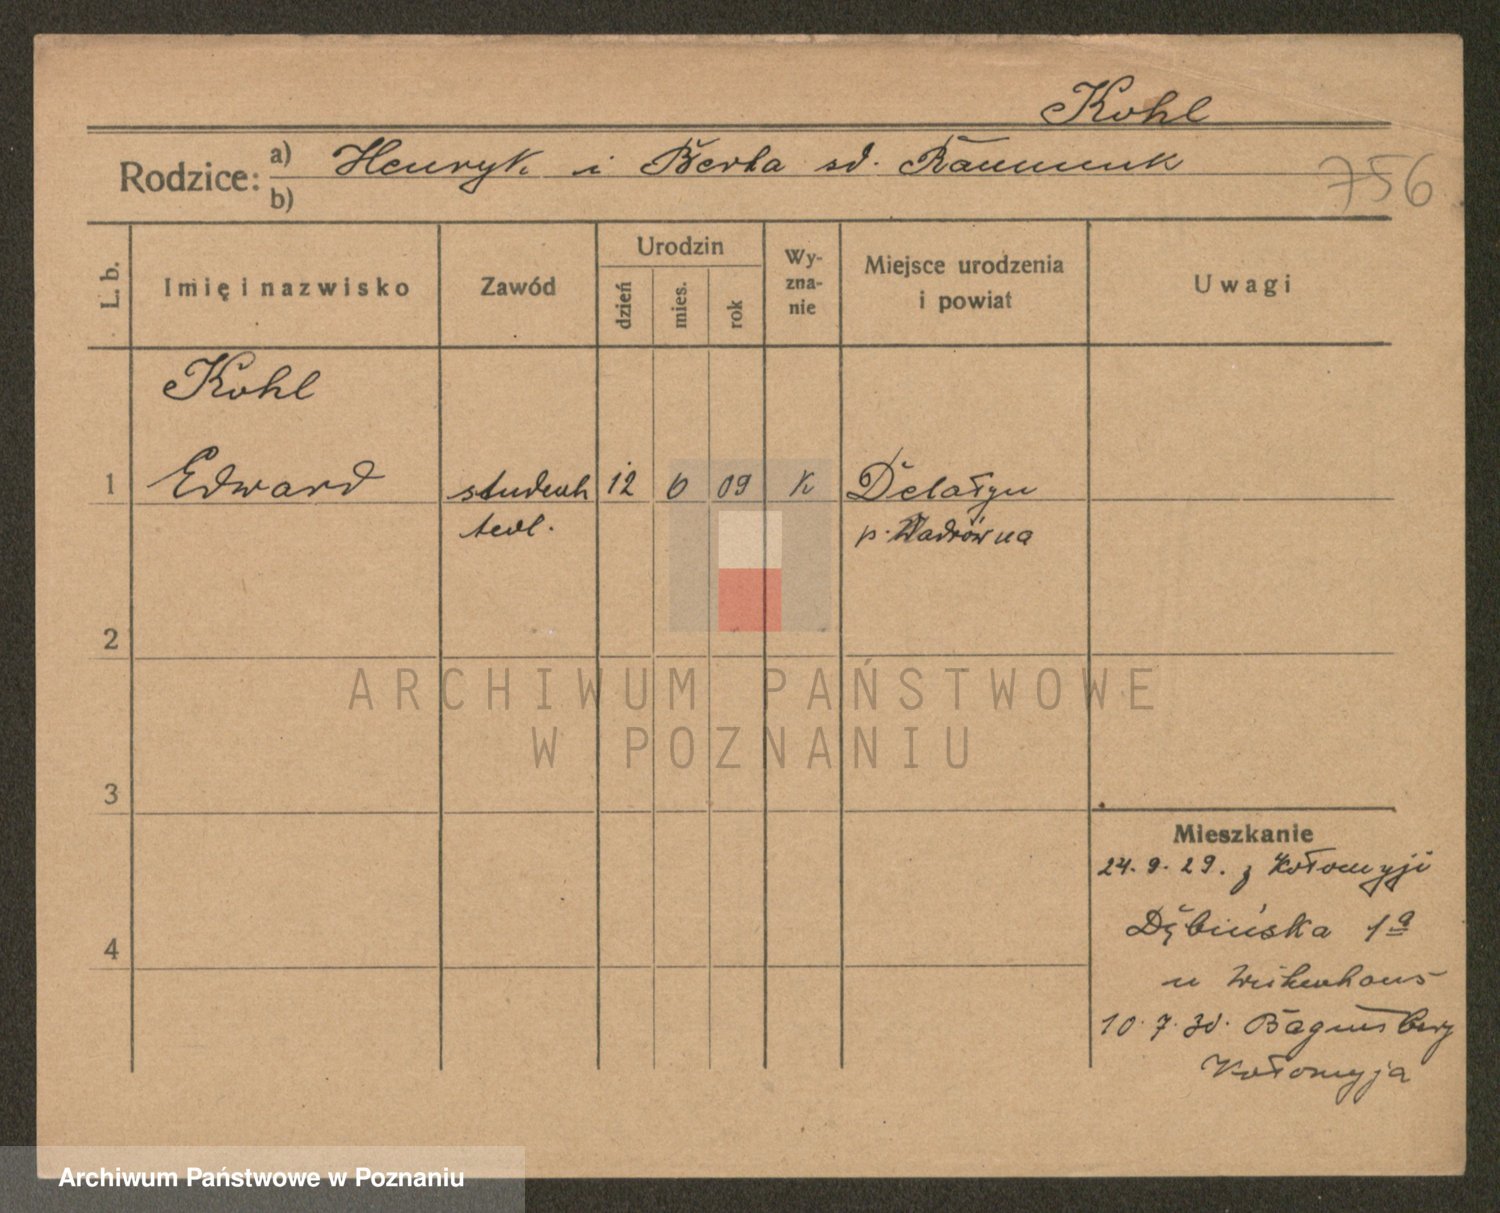 Kohl
Rodzice: a) Henryk i Berta
b)
756
L. b.
Imię i nazwisko
Zawód
Urodzin
dzień
mies.
rok
Wy-
zna-
nie
Miejsce urodzenia
i powiat
Uwagi
Kohl
1 Edward student 12 6 09 K Delatyn
p. Nadwórna
2
3
4
Mieszkanie
24.9.29. z Kołomyji
Dębińska 1a
u
10.7.30.
Kołomyja
ARCHIWUM PAŃSTWOWE
W POZNANIU
Archiwum Państwowe w Poznaniu